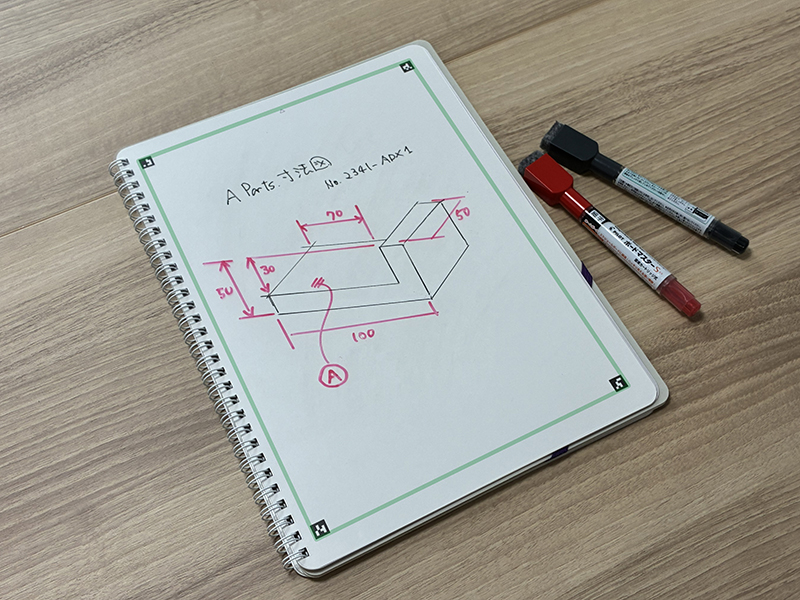 A Parts 寸法図
No. 2341-ADX1
70
50
30
50
100
A
PILOT ボードマスターS